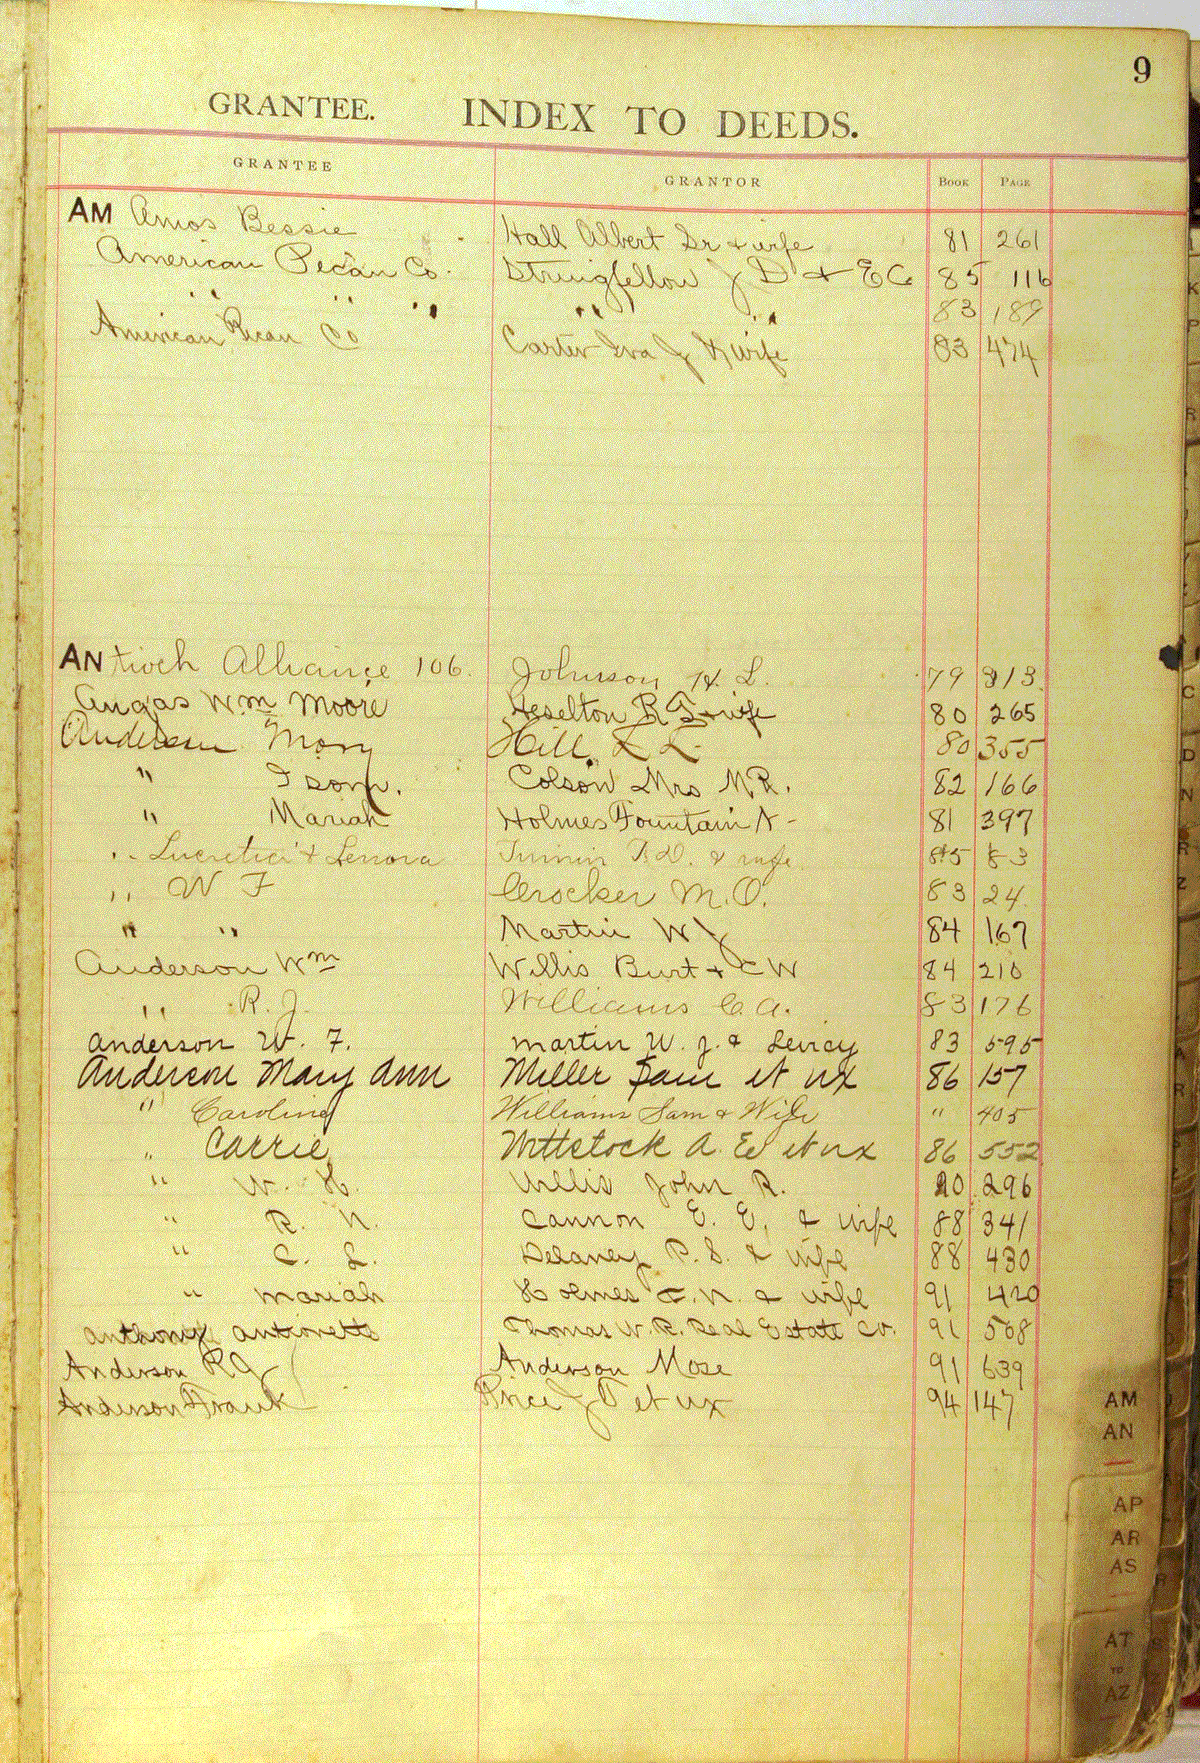 9
GRANTEE. INDEX TO DEEDS.
GRANTEE GRANTOR BOOK PAGE
AM Amos Bessie Hall Albert Sr & wife 81 261
American Pecan Co. Stringfellow J D & E C 85 116
" " " " " 83 189
American Pecan Co Carter Ira J & wife 83 474
ANtioch Alliance 106. Johnson H. L. 79 313
Angas Wm Moore Heselton R G & wife 80 265
Anderson Mary Hill L L 80 355
" Isom. Colson Mrs M.R. 82 166
" Mariah Holmes Fountain N - 81 397
" Lucretia & Lenora & wife 85
" W F Crocker M.O. 83 24.
" " Martin W J 84 167
Anderson Wm Willis Burt & C W 84 210
" R. J. Williams C. A. 83 176
Anderson W. F. Martin W. J. & 83 595
Anderson Mary Ann Miller Sam et ux 86 157
" Caroline Williams Sam & Wife " 405
" Carrie Wittstock A. E. et ux 86 552
" W. H. Willis John R. 20 296
" R. N. Cannon E. E. & wife 88 341
" C. L. Delaney P. S. & wife 88 430
" Mariah Holmes F. N. & wife 91 420
Anthony Antionette Thomas W. R. Real Estate Co. 91 508
Anderson R G Anderson Mose 91 639
Anderson Frank Price J T et ux 94 147
AM
AN
AP
AR
AS
AT
TO
AZ